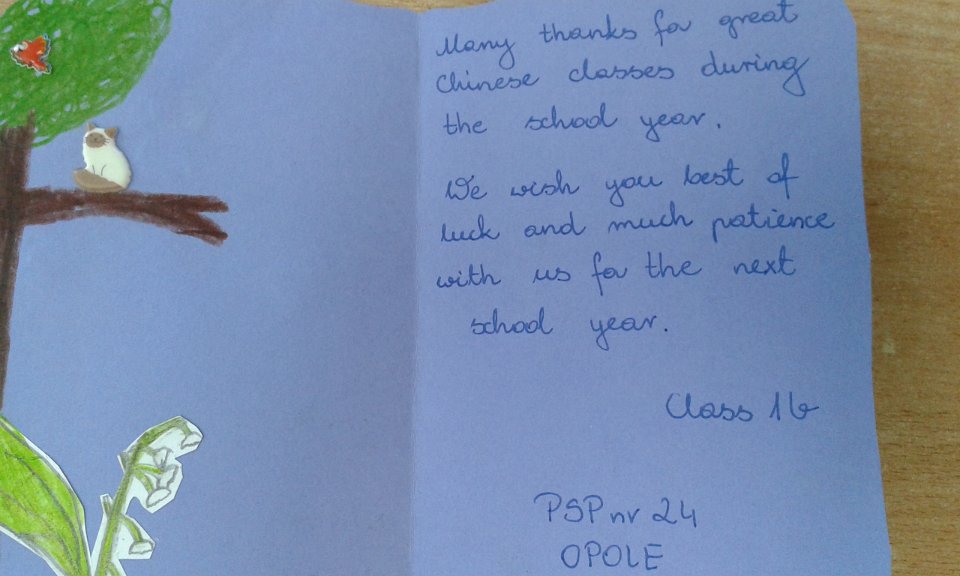 Many thanks for great
Chinese classes during
the school year.
We wish you best of
luck and much patience
with us for the next
school year.
Class 1b
PSP nr 24
OPOLE